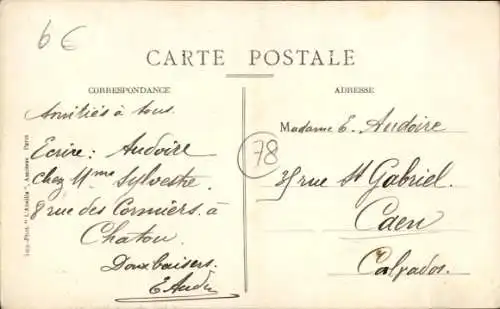 6€
CARTE POSTALE
CORRESPONDANCE
ADRESSE
Amitiés à tous.
Ecrire : Audoire
chez Mme Sylvestre.
8 rue des Cormiers. à
Chatou.
Doux baisers.
E Aud
78
Madame E. Audoire
35 rue St Gabriel.
Caen
Calvados.
Imp.-Phot. "L'Abeille", Asnières, Paris